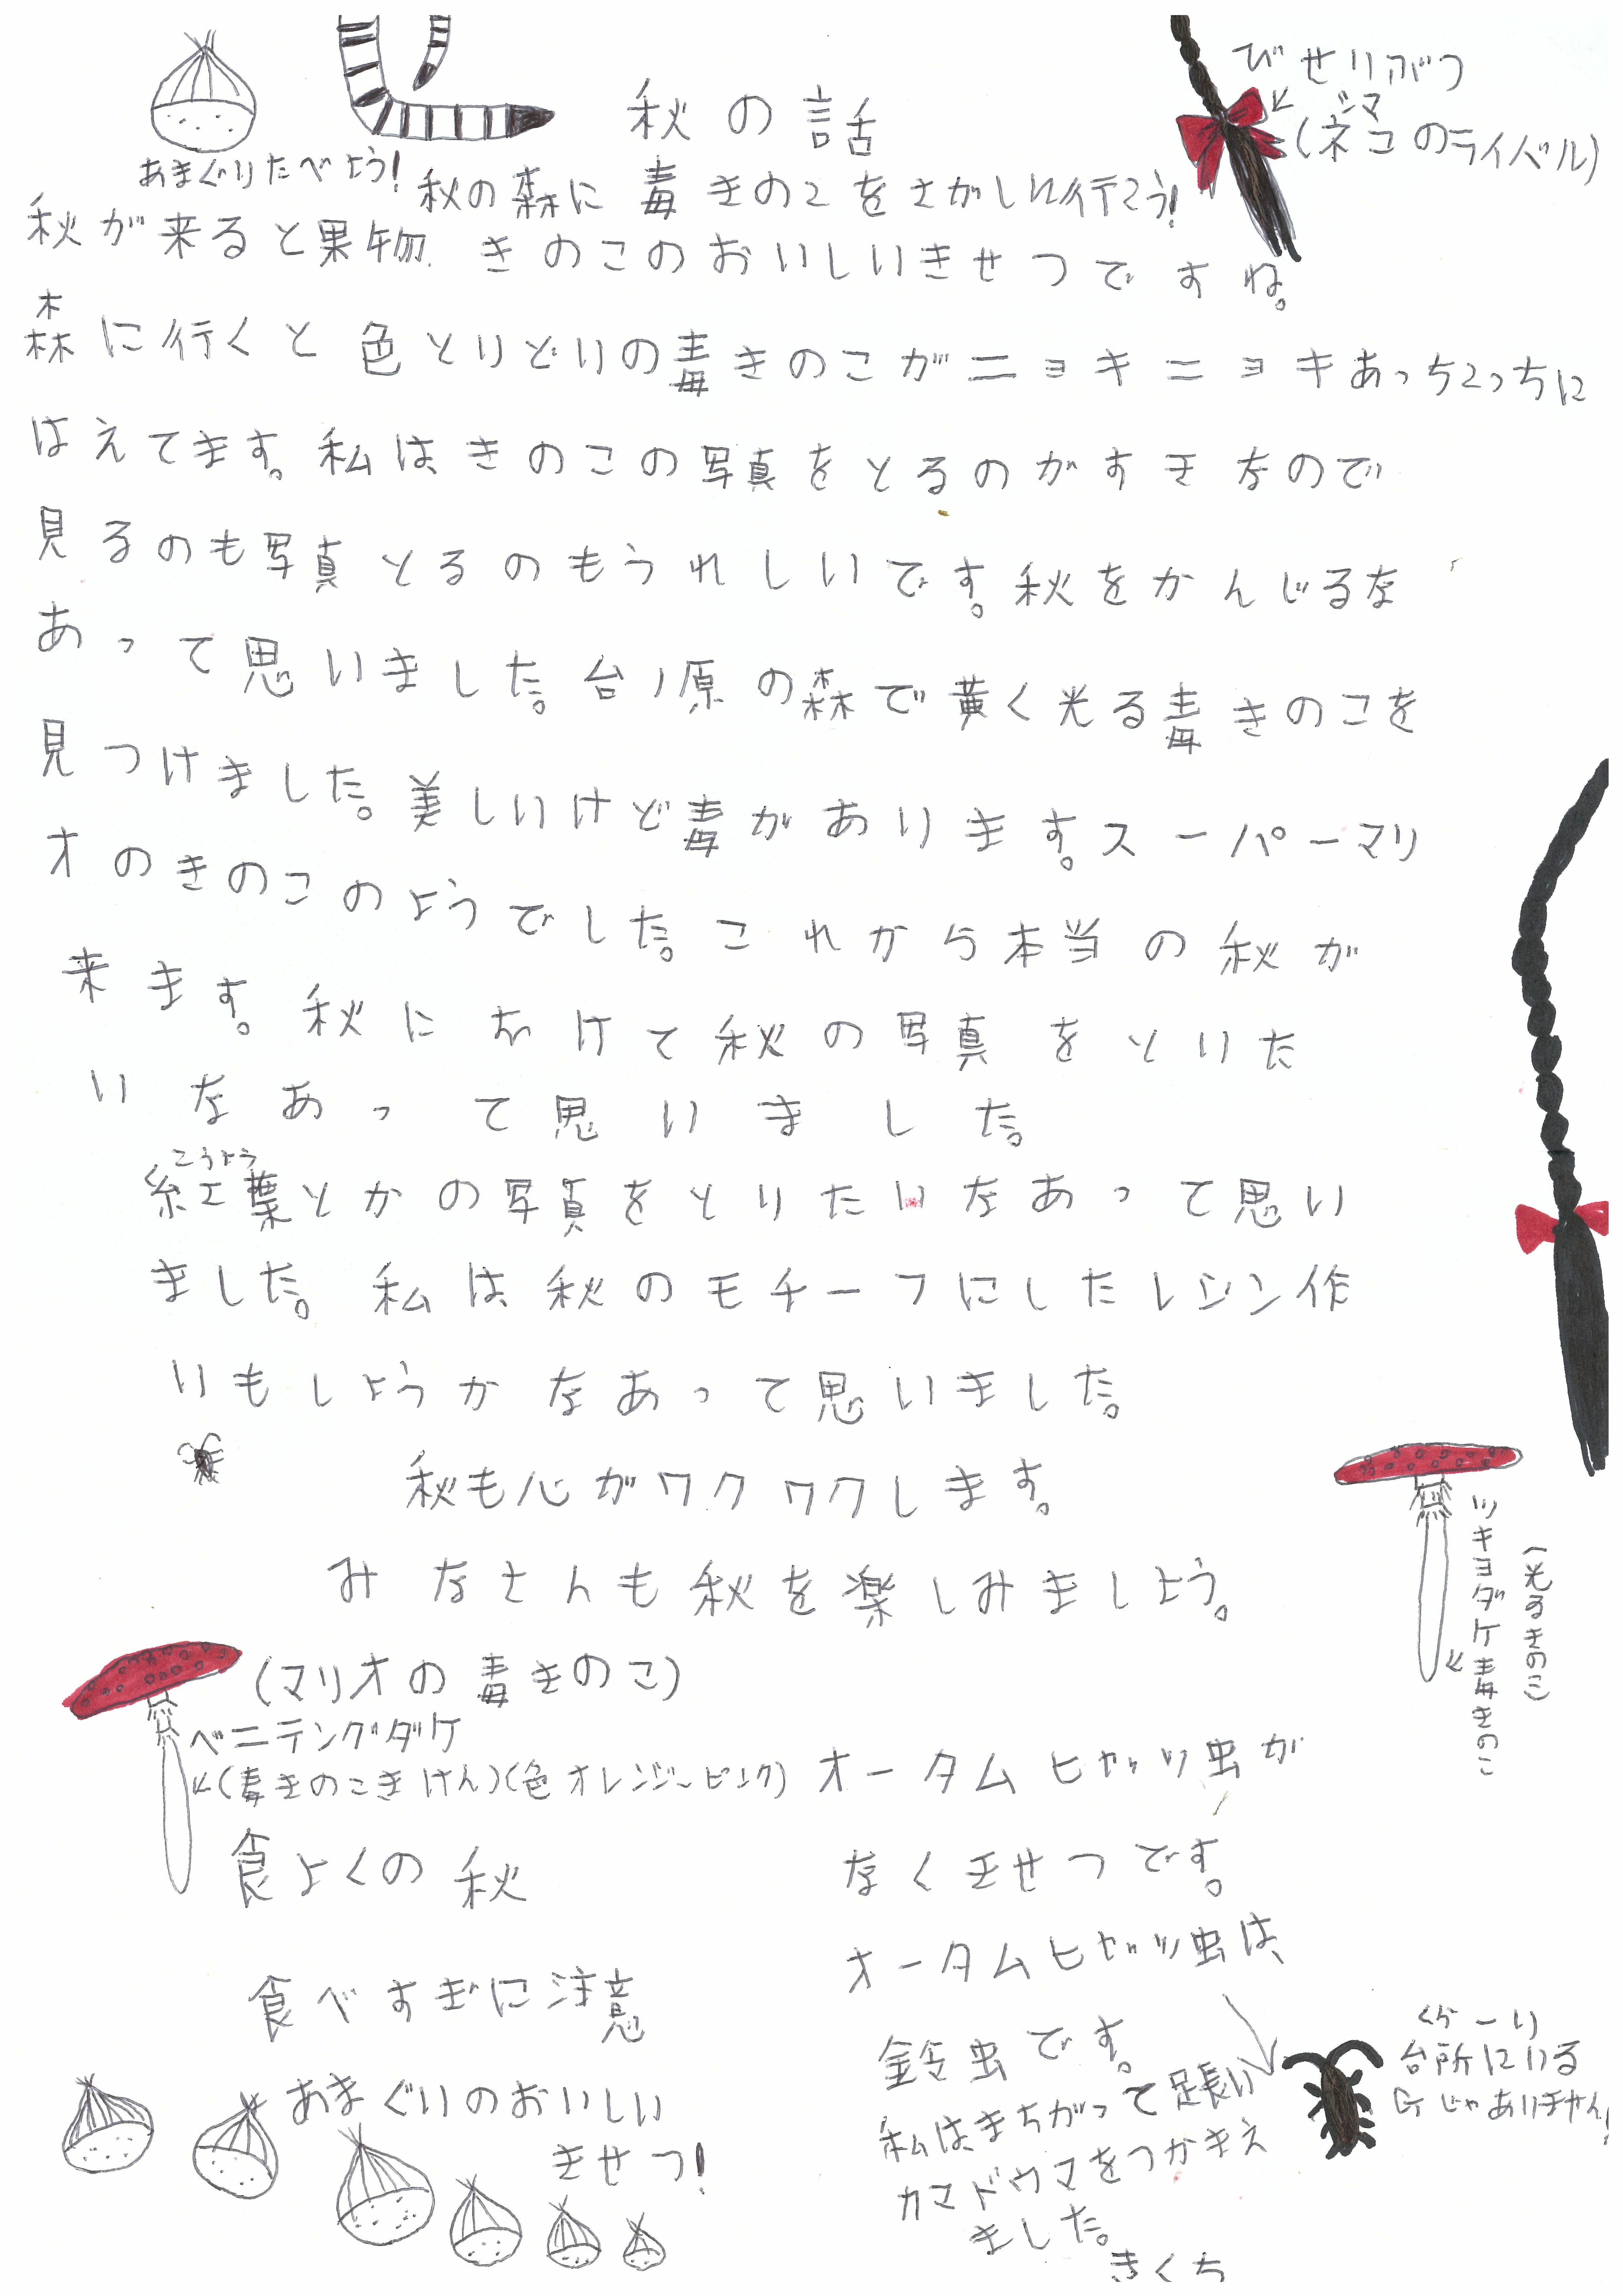 秋の話
びせりがつ
(シマネコのライバル)
あまぐりたべよう!
秋の森に毒きのこをさがしに行こう!
秋が来ると果物、きのこのおいしいきせつですね。
森に行くと色とりどりの毒きのこがニョキニョキあっちこっちに
はえてます。私は、きのこの写真をとるのがすきなので
見るのも写真とるのもうれしいです。秋をかんじるな
あって思いました。台ノ原の森で黄く光る毒きのこを
見つけました。美しいけど毒があります。スーパーマリ
オのきのこのようでした。これから本当の秋が
来ます。秋にむけて秋の写真をといた
いなあって思いました。
こうよう
紅葉とかの写真をとりたいなあって思い
ました。私は、秋のモチーフにしたレジン作
りもしようかなあって思いました。
秋も心がワクワクします。
みなさんも秋を楽しみましょう。
ツキヨダケ毒きのこ
(光るきのこ)
(マリオの毒きのこ)
ベニテングダケ
(毒きのこきけん)(色オレンジーピンク)
オータムヒャッツ虫が
なくきせつです。
オータムヒャッツ虫は、
鈴虫です。
私は、まちがって足長い
カマドウマをつかまえ
ました。
きくち
台所にいる
Gじゃありません!
食よくの秋
食べすぎに注意
あまぐいのおいしい
きせつ!